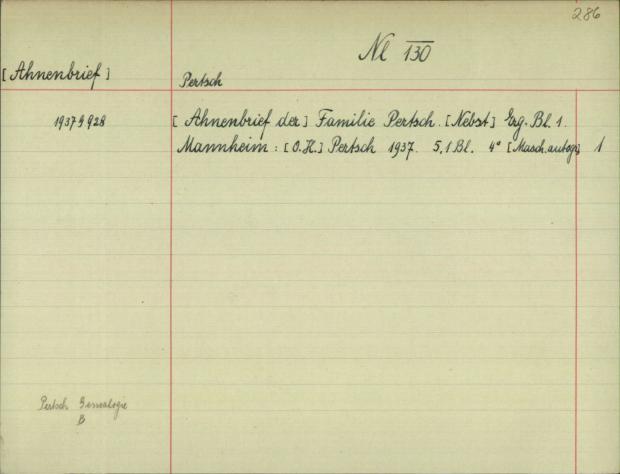 286
Nl 130
[Ahnenbrief]
Pertsch
1937 9 928
[Ahnenbrief der] Familie Pertsch. [Nebst] Erg. Bl. 1.
Mannheim: [O.H.] Pertsch 1937. 5,1 Bl. 4° [Masch. autogr.] 1
Pertsch Genealogie
B